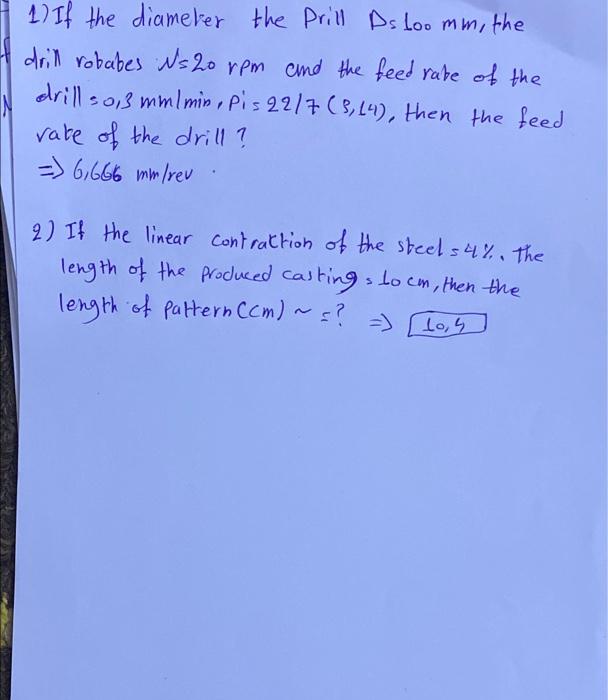 1) If the diameter the Drill D=100 mm, the
drill robabes N=20 rpm and the feed rate of the
drill = 0,3 mm/min, Pi = 22/7 (3,14), then the feed
rate of the drill ?
=> 6,666 mm/rev .
2) If the linear contraction of the steel = 4%. The
length of the produced casting = 10 cm, then the
length of pattern (cm) ~ = ? => 10,4